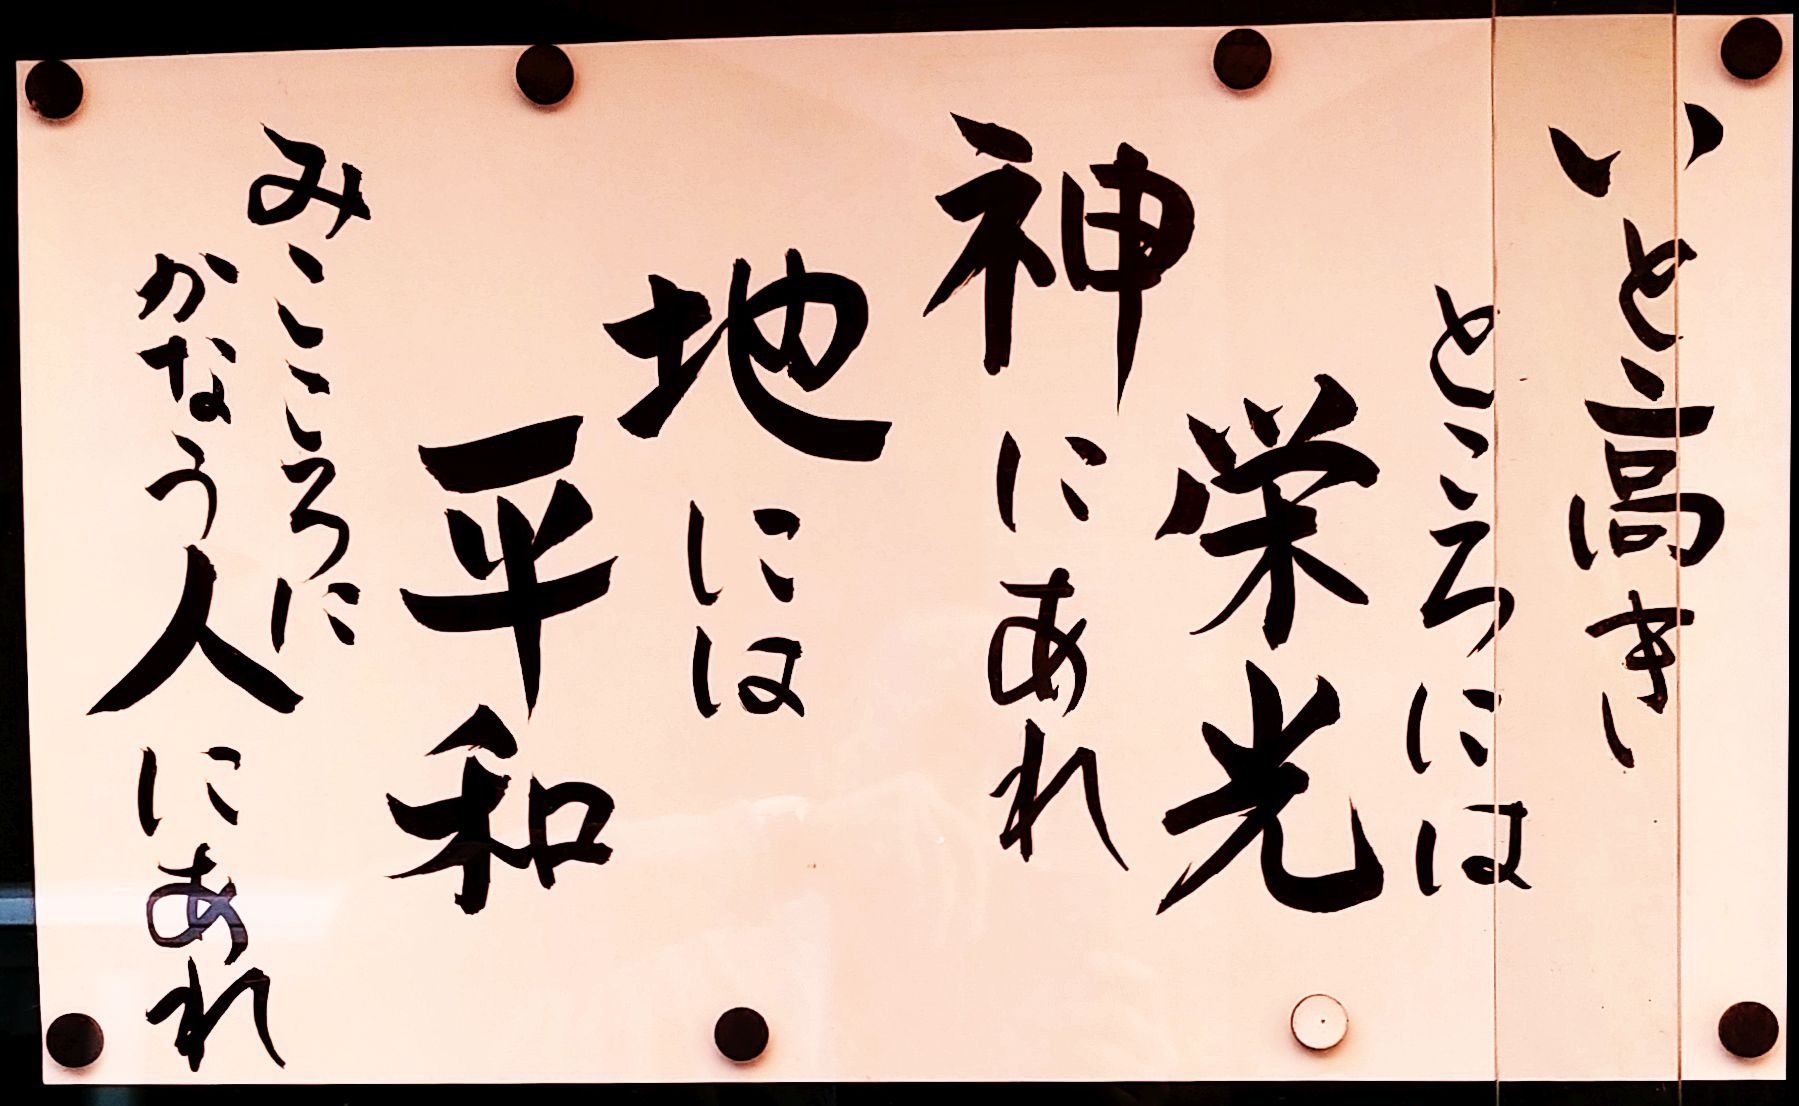 いと高き
ところには
栄光
神にあれ
地には
平和
みこころに
かなう人にあれ